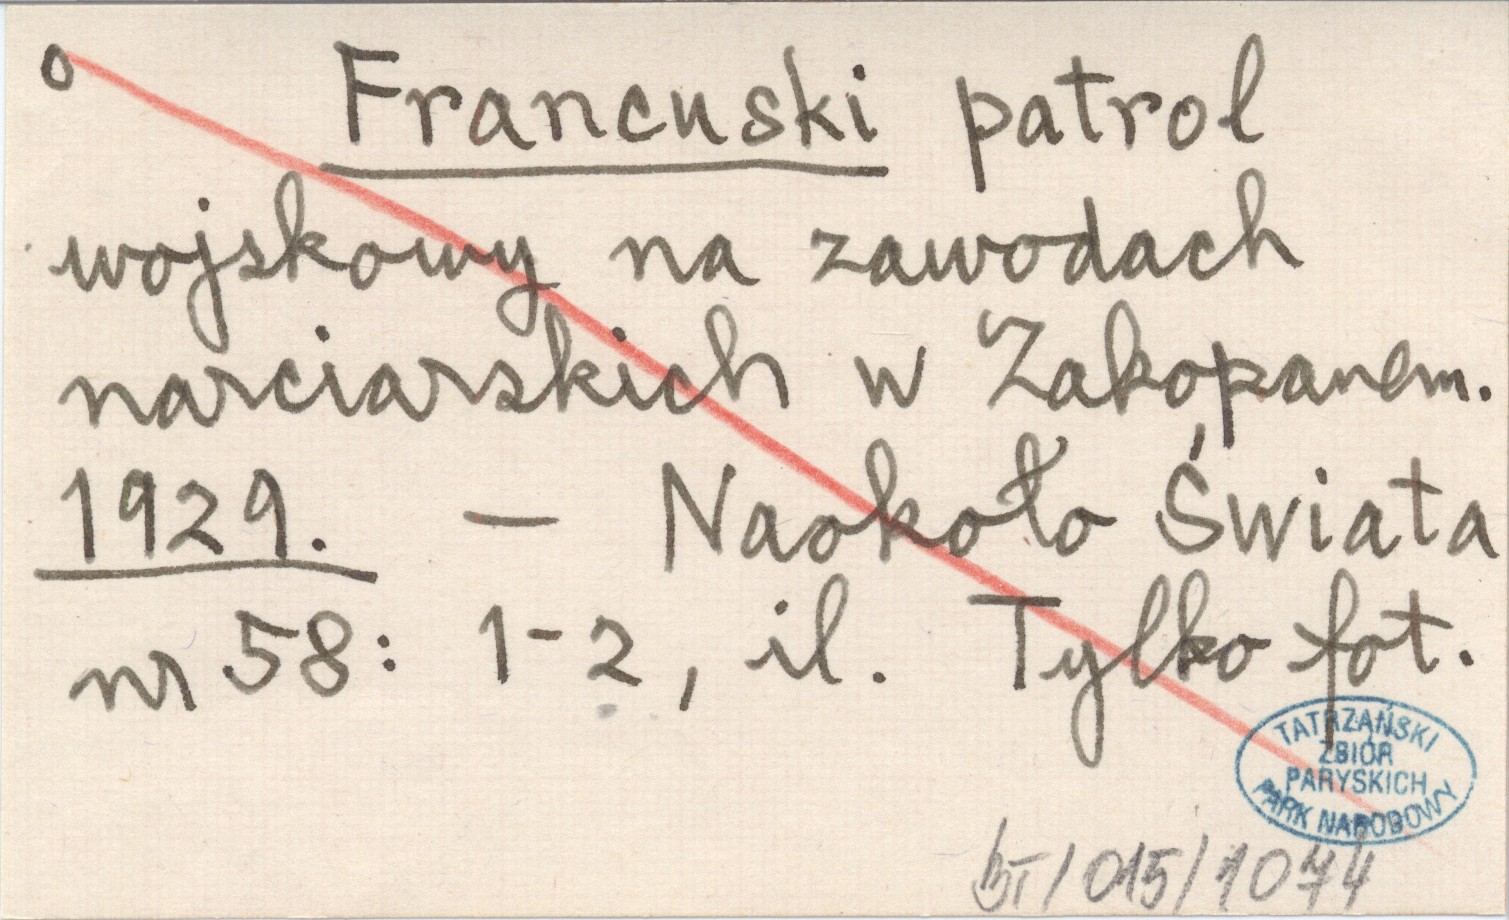 o Francuski patrol
wojskowy na zawodach
narciarskich w Zakopanem.
1929. — Naokoło Świata
nr 58: 1-2, il. Tylko fot.
TATRZAŃSKI
ZBIÓR
PARYSKICH
PARK NARODOWY
BT/015/1074